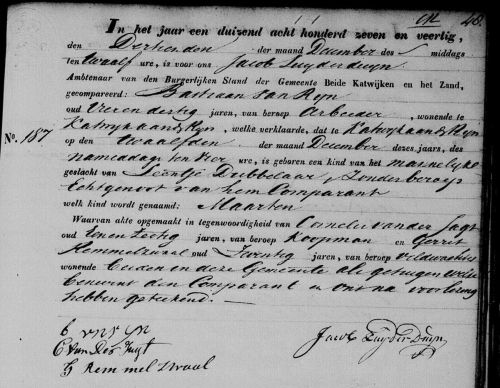 In het jaar een duizend acht honderd zeven en veertig,
den Dertienden der maand December des middags
ten twaalf ure, is voor ons Jacob Tuyderduyn
Ambtenaar van den Burgerlijken Stand der Gemeente Beide Katwijken en het Zand,
gecompareerd: Bastiaan van Ryn
oud Vierendertig jaren, van beroep Arbeider, wonende te
Katwyk aan den Ryn, welke verklaarde, dat te Katwyk aan den Ryn
No. 187 op den twaalfden der maand December dezes jaars, des
namiddags ten vier ure, is geboren een kind van het mannelyke
geslacht van Leentje Dubbelaar, zonder beroep
Echtgenoot van hem Comparant
welk kind wordt genaamd: Maarten
Waarvan akte opgemaakt in tegenwoordigheid van Cornelis van der Jagt
oud jaren, van beroep Koopman en Gerrit
Remmelzwaal oud Zeventig jaren, van beroep Veldwachter
wonende beiden in deze Gemeente als getuigen welke
benevens den Comparant en ons na voorlezing
hebben geteekend.
B van Ryn
C van Der Jagt
G Remmelzwaal
Jacob Tuyderduyn